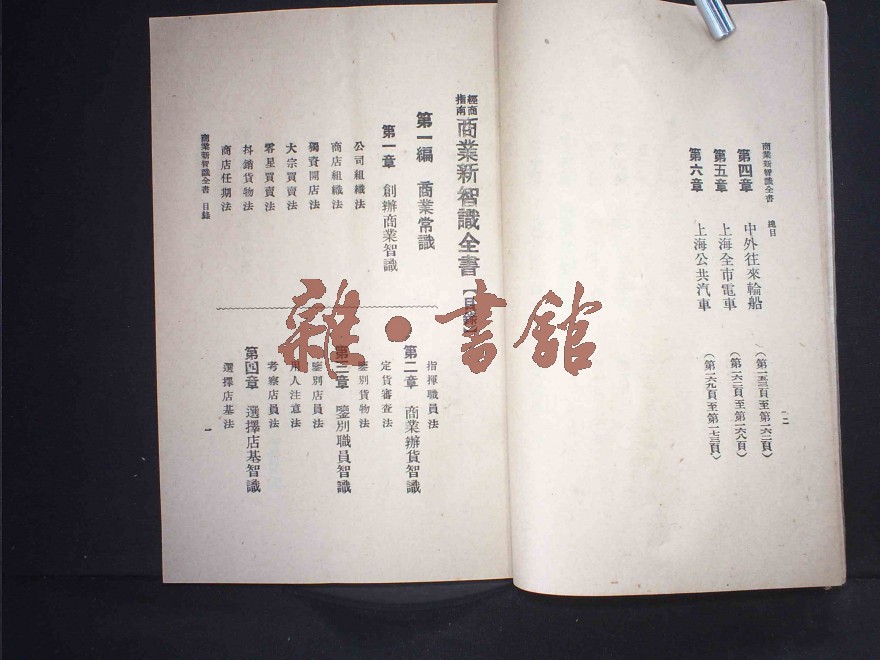 商業新智識全書　總目
第四章　中外往來輪船　（第一五三頁至第一六二頁）
第五章　上海全市電車　（第一六三頁至第一六八頁）
第六章　上海公共汽車　（第一六九頁至第一七三頁）
二
經商指南　商業新智識全書【目錄】
第一編　商業常識
第一章　創辦商業智識
公司組織法
商店組織法
獨資開店法
大宗買賣法
零星買賣法
抖銷貨物法
商店任期法
指揮職員法
第二章　商業辦貨智識
定貨審查法
鑒別貨物法
第三章　鑒別職員智識
鑒別店員法
用人注意法
考察店員法
第四章　選擇店基智識
選擇店基法
商業新智識全書　目錄
一
雜·書館